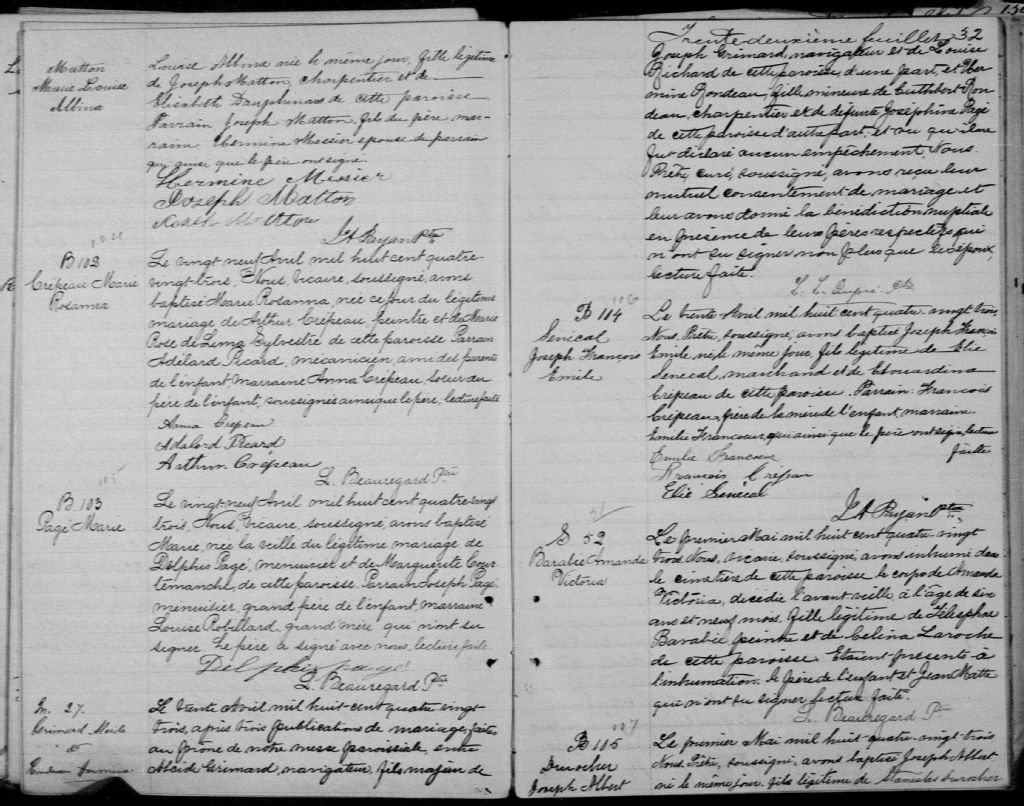 Matton
Marie Louise
Albina
Louise Albina née le même jour, fille légitime
de Joseph Matton, charpentier et de
Elisabeth Dauphinais de cette paroisse
Parrain Joseph Matton, fils du père, mar-
raine Hermine Messier epouse du parrain
qui ainsi que le père ont signé.
Hermine Messier
Joseph Matton
Joseph Matton
Payan Ptre
B 102
Crépeau Marie
Rosanna
Le vingt neuf Avril mil huit cent quatre
vingt trois, Nous, Vicaire, soussigné, avons
baptisé Marie Rosanna, née ce jour du légitime
mariage de Arthur Crépeau, peintre et de Marie
Rose de Lima Sylvestre de cette paroisse Parrain
Adélard Picard, mécanicien, ami des parents
de l'enfant, marraine Anna Crépeau, soeur du
père de l'enfant, soussignés ainsi que le père, lecture faite
Anna Crépeau
Adalord Picard
Arthur Crépeau
L. Beauregard Ptre
105
B. 103
Pagé Marie
Le vingt neuf Avril mil huit cent quatre vingt
trois, Nous, Vicaire, soussigné, avons baptisé
Marie, née la veille du légitime mariage de
Delphis Pagé, menuisier et de Marguerite Cour-
temanche, de cette paroisse. Parrain Joseph Pagé
menuisier, grand père de l'enfant, marraine
Louise Robillard, grand mère qui n'ont su
signer. Le père a signé avec nous, lecture faite.
Delphis page
L. Beauregard Ptre
M. 27.
Grimard
&
Rondeau Hermine
Le trente Avril mil huit cent quatre vingt
trois, après trois publications de mariage, faites
au prône de notre messe paroissiale, entre
Alcide Grimard, navigateur, fils majeur de
Trente deuxième feuillet 32
Joseph Grimard, navigateur et de Louise
Richard de cette paroisse, d'une part, et Her-
mine Rondeau, fille mineure de Cuthbert Ron-
deau, charpentier et de défunte Joséphine Pagé
de cette paroisse d'autre part, et vu qu'il ne
fut déclaré aucun empêchement, Nous,
Prêtre, curé, soussigné, avons reçu leur
mutuel consentement de mariage et
leur avons donné la bénédiction nuptiale
en présence de leurs pères respectifs, qui
n'ont su signer non plus que les époux,
lecture faite.
Dupré Ptre
106
B 114
Senécal
Joseph François
Emile
Le trente Avril mil huit cent quatre vingt trois,
Nous, Prêtre, soussigné, avons baptisé Joseph François
Emile né le même jour, fils légitime de Elie
Senécal, marchand et de Edouardina
Crépeau de cette paroisse. Parrain François
Crépeau, frère de la mère de l'enfant, marraine
Emilie Francoeur, qui ainsi que le père ont signé, lecture
faite
Emilie Francoeur
François Crépeau
Elie Senécal
Payan Ptre
S 52
Barabée Amanda
Victoria
Le premier Mai mil huit cent quatre vingt
trois Nous, vicaire soussigné, avons inhumé dans
le cimetière de cette paroisse le corps de Amanda
Victoria, décédée l'avant veille à l'age de six
ans et neuf mois, fille légitime de Télesphore
Barabée peintre et de Celina Laroche
de cette paroisse. Etaient présents à
l'inhumation, le père de l'enfant et Jean Matte
qui n'ont su signer, lecture faite.
L. Beauregard Ptre
107
B 115
Durocher
Joseph Albert
Le premier Mai mil huit quatre vingt trois
Nous, Prêtre, soussigné, avons baptisé Joseph Albert
né le même jour, fils légitime de Stanislas Durocher